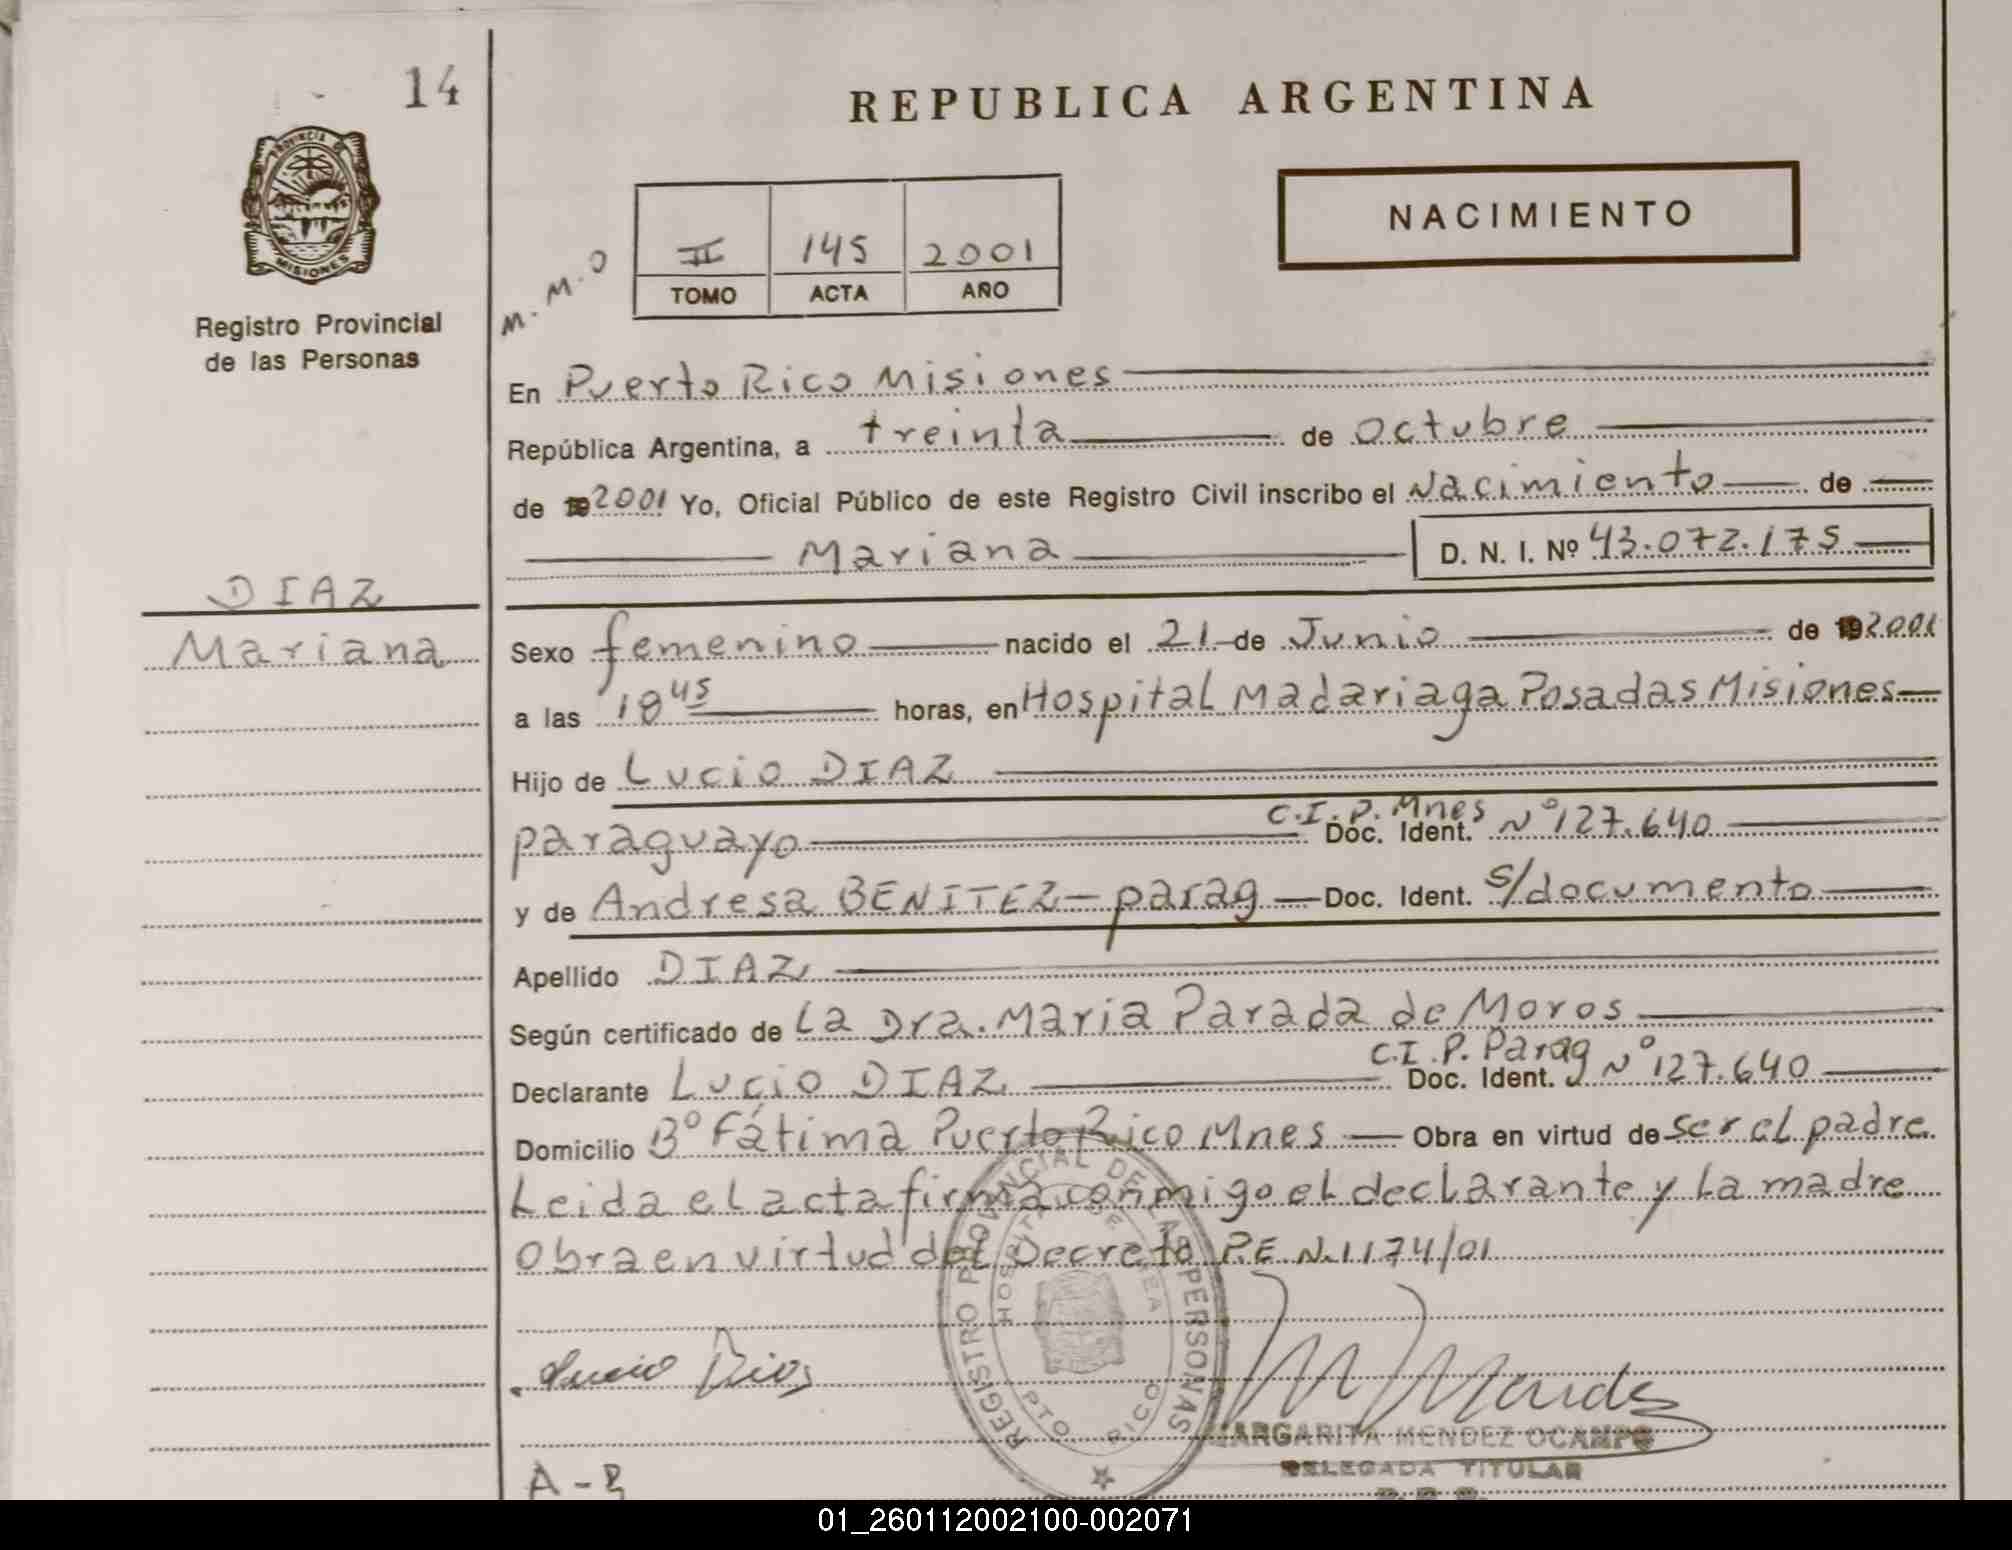 14
REPUBLICA ARGENTINA
PROVINCIA DE
MISIONES
NACIMIENTO
M.M.O
II 145 2001
TOMO ACTA AÑO
Registro Provincial
de las Personas
En Puerto Rico Misiones
República Argentina, a treinta de octubre
de 19 2001 Yo, Oficial Público de este Registro Civil inscribo el Nacimiento de
Mariana D. N. I. Nº 43.072.175
DIAZ
Mariana
Sexo femenino nacido el 21 de Junio de 19 2001
a las 18 45 horas, en Hospital Madariaga Posadas Misiones
Hijo de Lucio DIAZ
paraguayo C.I.P. Mnes Doc. Ident. Nº 127.640
y de Andresa BENITEZ - parag Doc. Ident. s/documento
Apellido DIAZ
Según certificado de La Dra. Maria Parada de Moros
Declarante Lucio DIAZ C.I.P. Parag Doc. Ident. Nº 127.640
Domicilio Bº Fátima Puerto Rico Mnes Obra en virtud de ser el padre
Leida el acta firma conmigo el declarante y La madre
Obra en virtud del Decreto P.E.N. 1174/01
REGISTRO PROVINCIAL DE LAS PERSONAS
HOSPITAL DE AREA
PTO RICO
Lucio Dios
M Mendez
MARGARITA MENDEZ OCAMPO
DELEGADA TITULAR
A-B
01_260112002100-002071